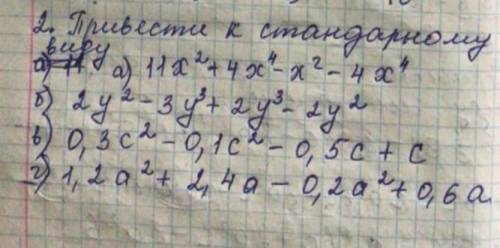 2. Привести к стандарному
виду
а) 11x² + 4x⁴ - x² - 4x⁴
б) 2y² - 3y³ + 2y³ - 2y²
в) 0,3c² - 0,1c² - 0,5c + c
г) 1,2a² + 2,4a - 0,2a² + 0,6a